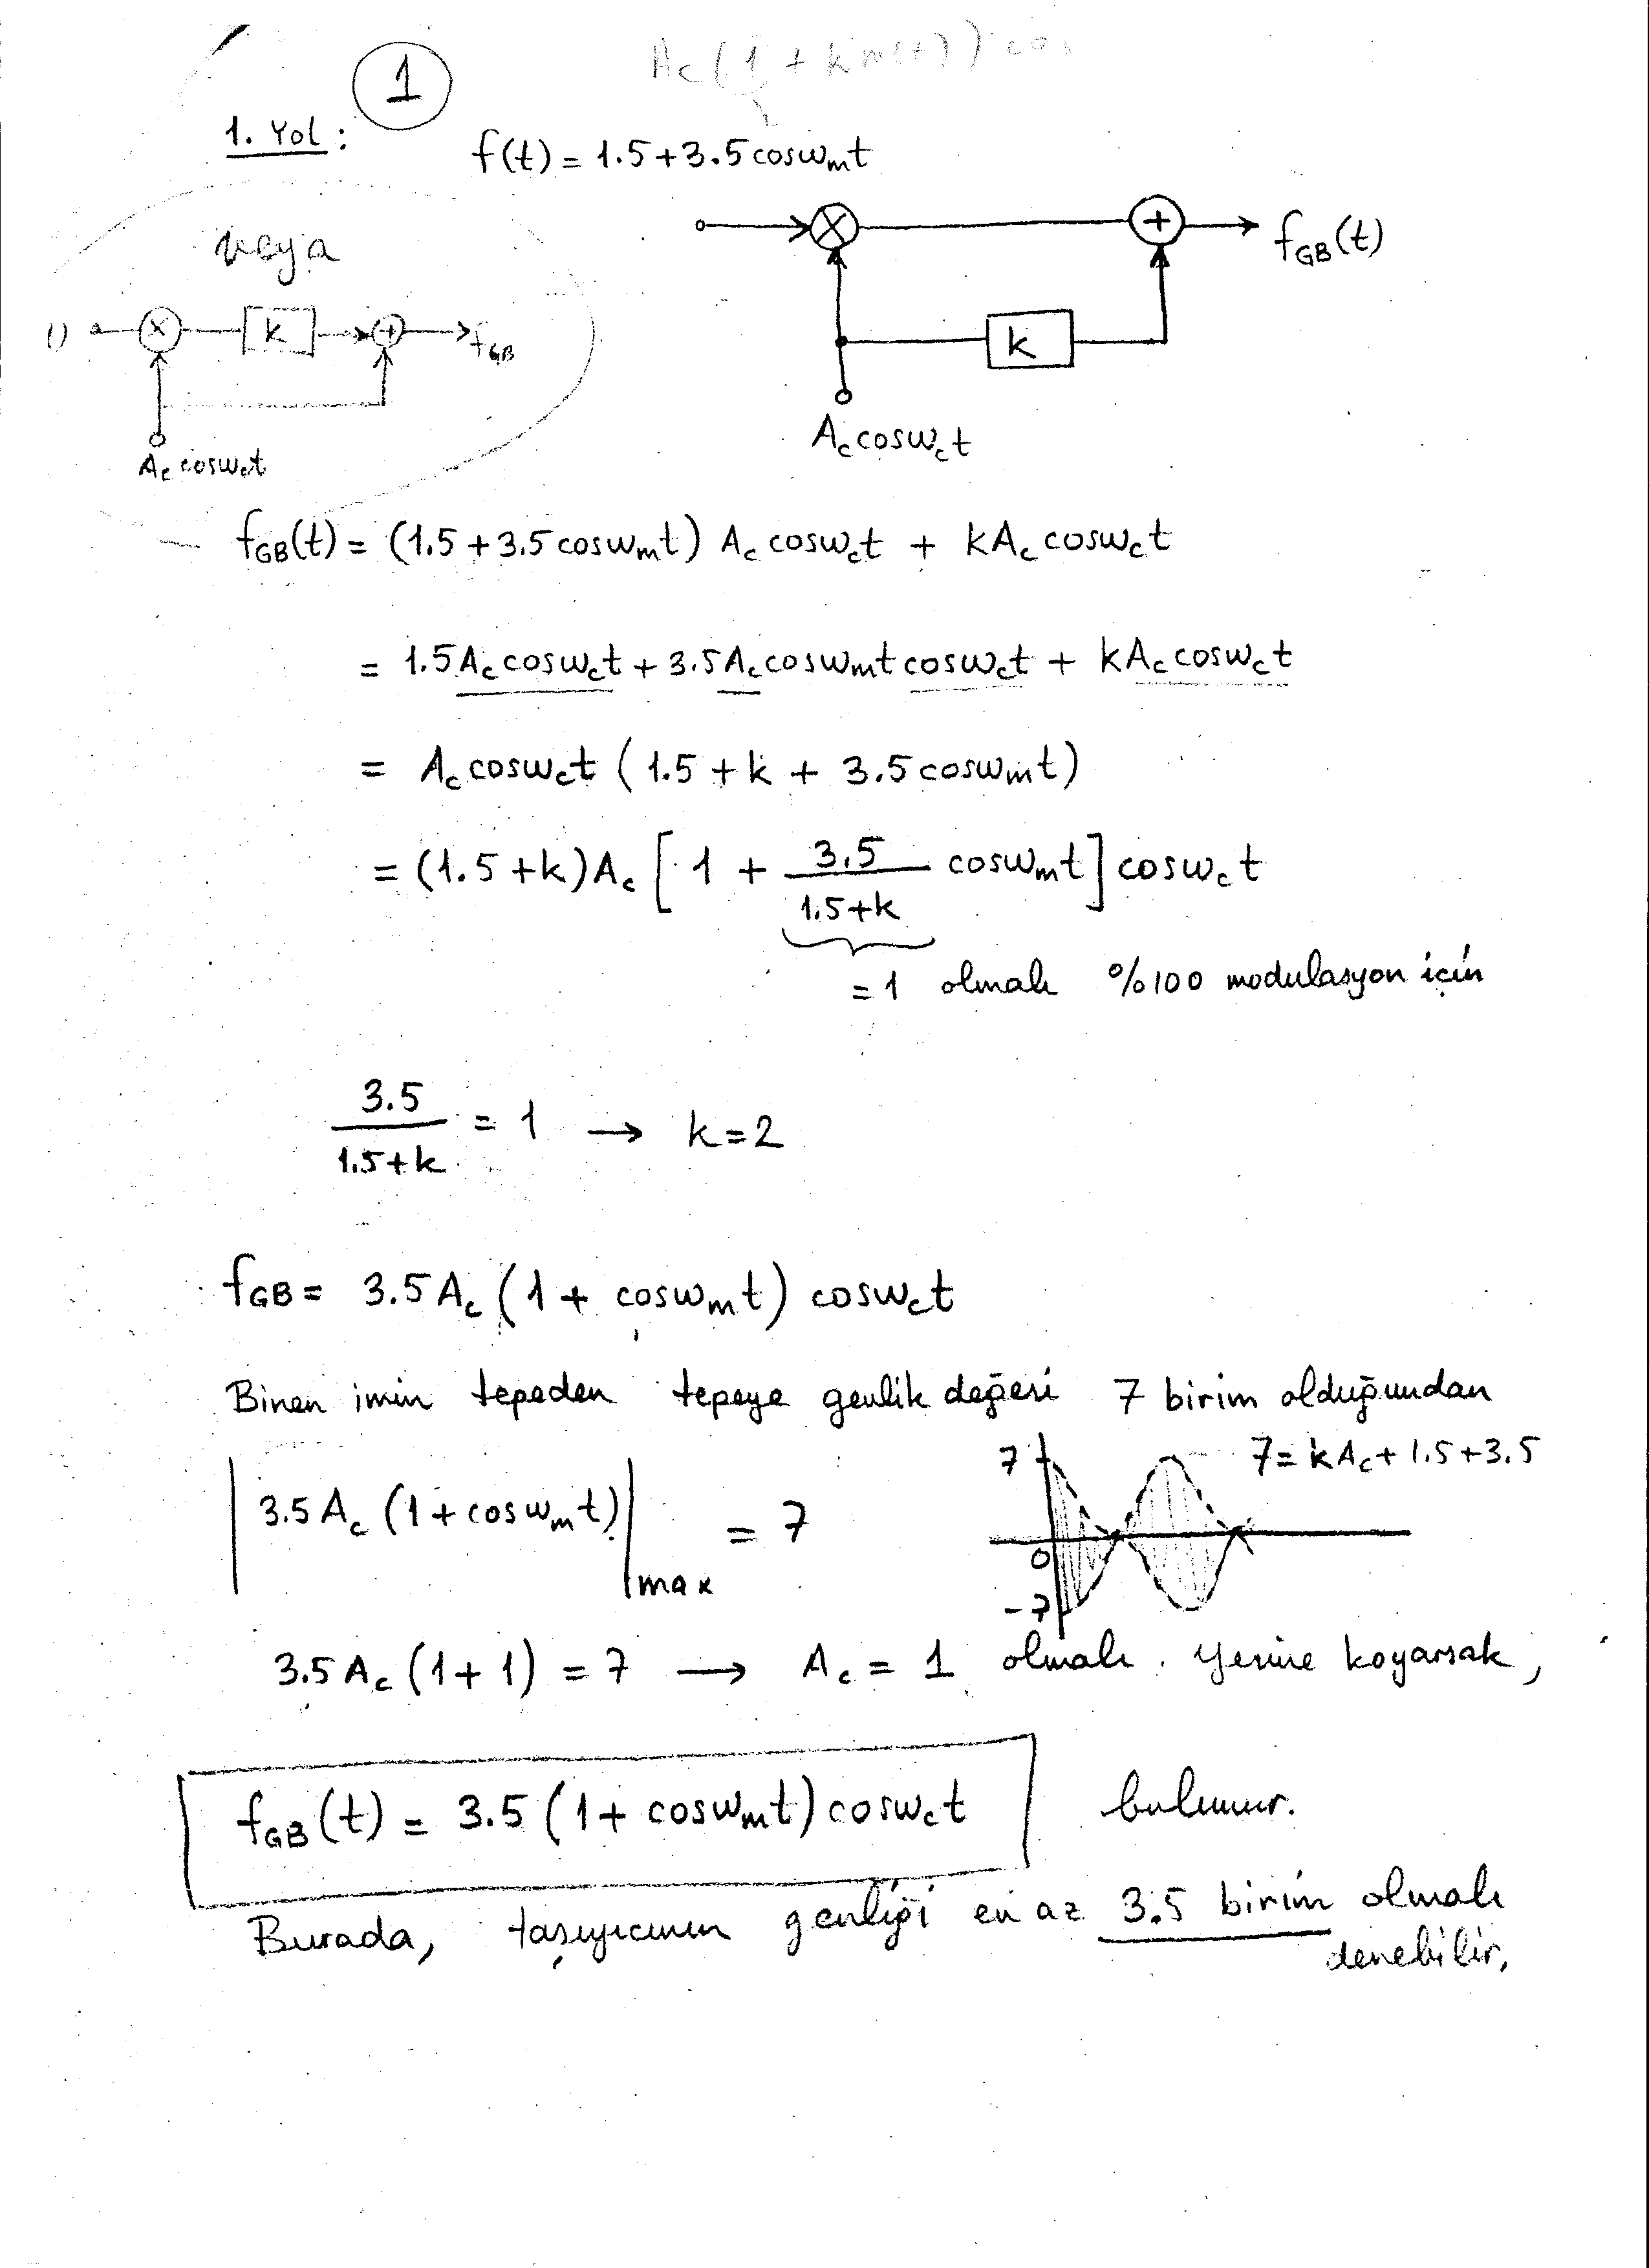 Ac(1+km(t))cos
1
1. Yol:
f(t) = 1.5+3.5 coswmt
veya
× k + fGB
Ac coswct
× + fGB(t)
k
Ac coswct
fGB(t) = (1.5+3.5 coswmt) Ac coswct + kAc coswct
= 1.5Ac coswct + 3.5Ac coswmt coswct + kAc coswct
= Ac coswct (1.5 + k + 3.5 coswmt)
= (1.5+k)Ac [1 + 3.5/1.5+k coswmt] coswct
= 1 olmalı %100 modulasyon için
3.5/1.5+k = 1 → k=2
fGB = 3.5Ac (1 + coswmt) coswct
Binen imin tepeden tepeye genlik değeri 7 birim olduğundan
|3.5Ac (1+coswmt)|max = 7
7 0 -7
7= kAc+ 1.5+3.5
3.5Ac (1+1) = 7 → Ac = 1 olmalı. Yerine koyarsak,
fGB(t) = 3.5 (1+ coswmt) coswct bulunur.
Burada, taşıyıcının genliği en az 3.5 birim olmalı
denebilir.